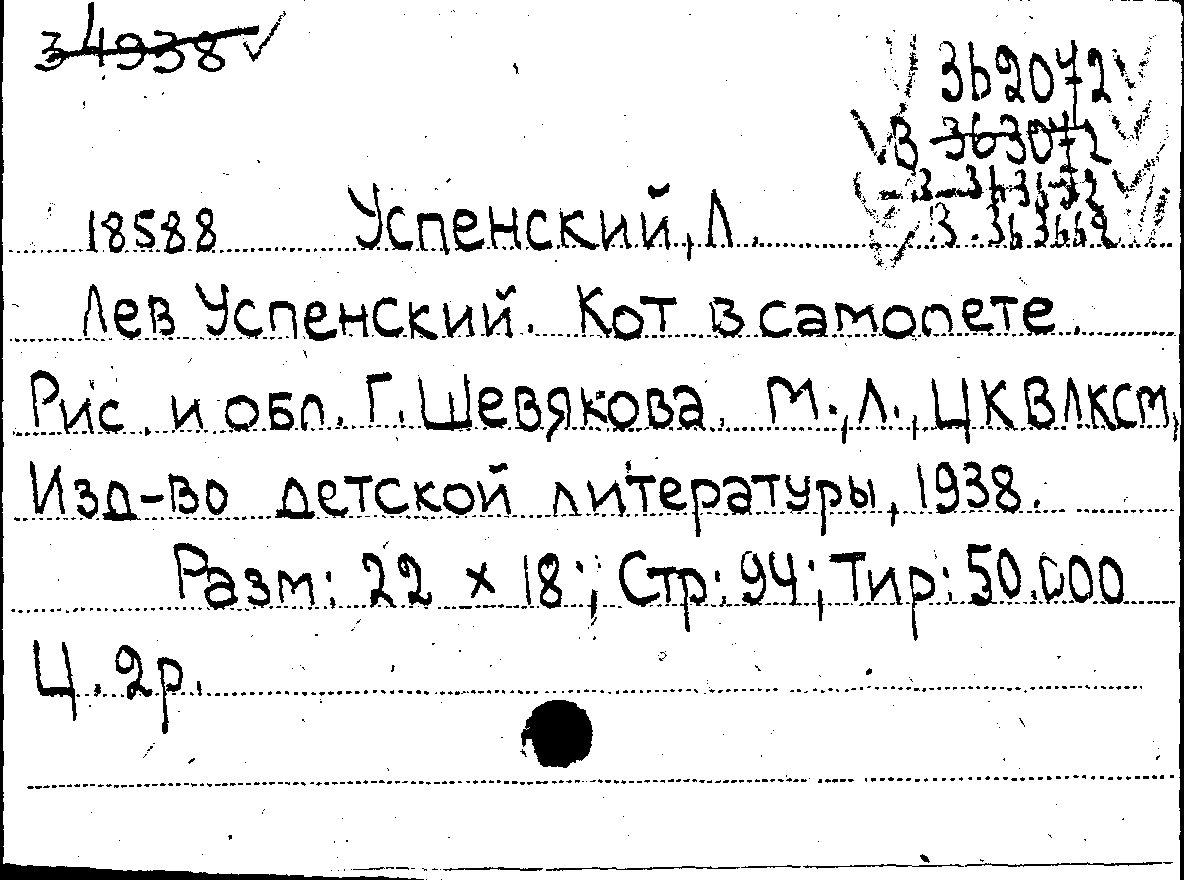 34938
362072
В 363072
18588 Успенский, Л.
В. 363669
Лев Успенский. Кот в самолете.
Рис. и обл. Г. Шевякова. М., Л., ЦК ВЛКСМ,
Изд-во детской литературы, 1938.
Разм: 22 x 18; Стр: 94; Тир: 50.000
Ц. 2р.